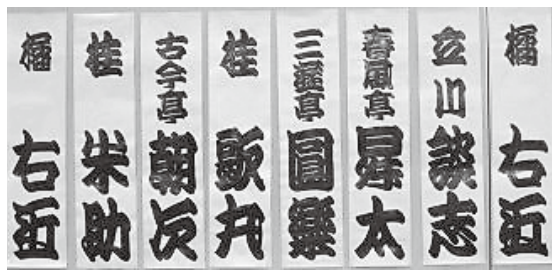 橘右近
立川談志
春風亭昇太
三遊亭圓樂
桂歌丸
古今亭朝次
桂米助
橘右近